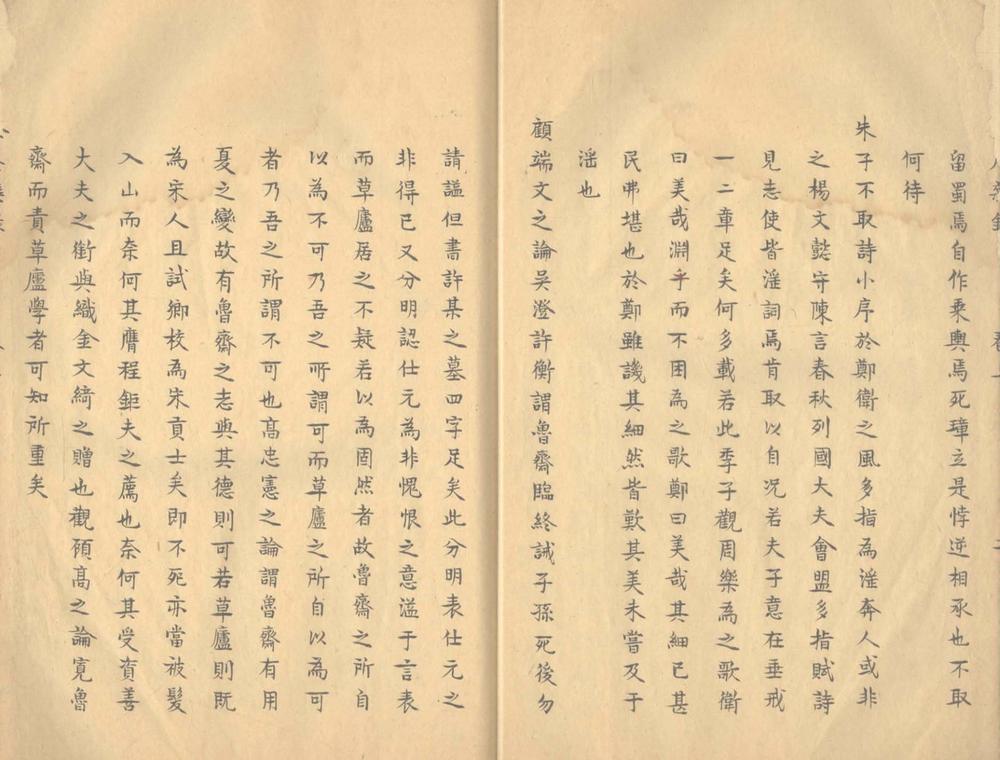 留蜀焉自作乘輿焉死璋立是悖逆相承也不取
何待
朱子不取詩小序於鄭衛之風多指為滛奔人或非
之楊文懿守陳言春秋列國大夫會盟多指賦詩
見志使皆滛詞焉肯取以自况若夫子意在垂戒
一二章足矣何多載若此季子觀周樂為之歌衛
曰美哉淵乎而不困為之歌鄭曰美哉其細已甚
民弗堪也於鄭雖譏其細然皆歎其美未嘗及于
滛也
顧端文之論吴澄許衡謂魯齋臨終誡子孫死後勿
請謚但書許某之墓四字足矣此分明表仕元之
非得已又分明認仕元為非愧恨之意溢于言表
而草廬居之不疑若以為固然者故魯齋之所自
以為不可乃吾之所謂可而草廬之所自以為可
者乃吾之所謂不可也高忠憲之論謂魯齋有用
夏之變故有魯齋之志與其德則可若草廬則既
為宋人且試鄉校為宋貢士矣即不死亦當被髮
入山而奈何其膺程鉅夫之薦也奈何其受資善
大夫之銜與織金文綺之贈也觀顧高之論寛魯
齋而責草廬學者可知所重矣